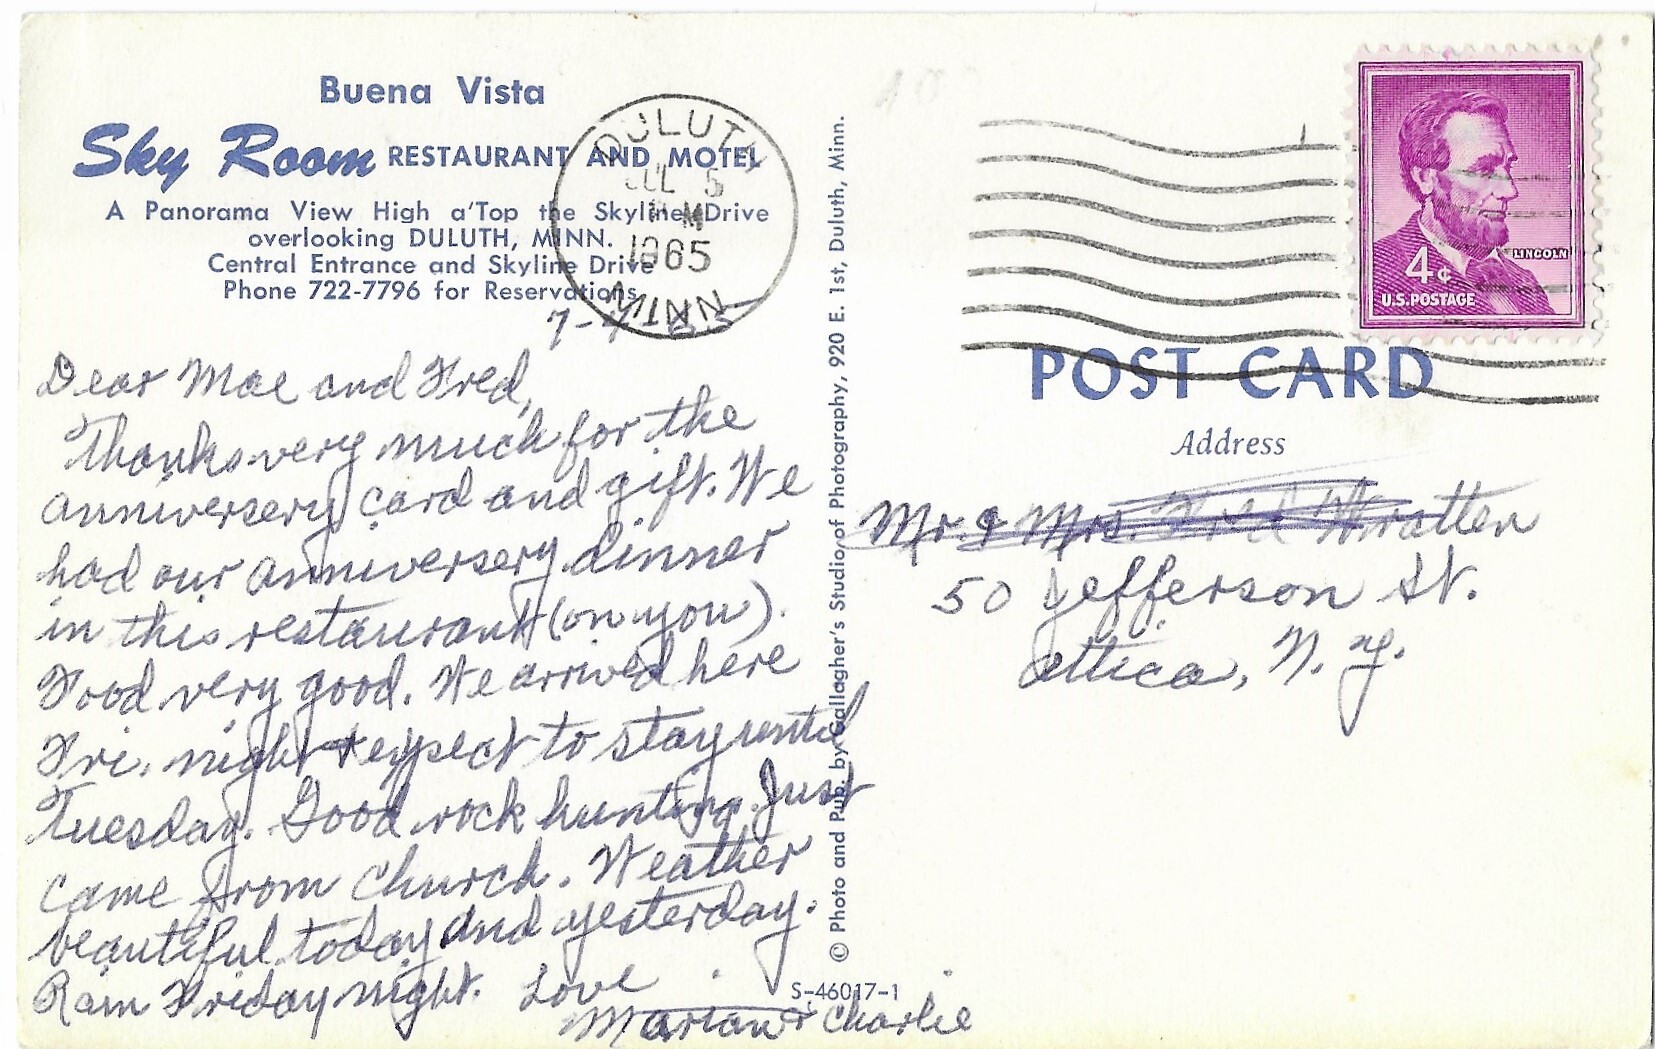 Buena Vista
Sky Room RESTAURANT AND MOTEL
A Panorama View High a'Top the Skyline Drive
overlooking DULUTH, MINN.
Central Entrance and Skyline Drive
Phone 722-7796 for Reservations
DULUTH
JUL 5
1965
MINN
7-4-65
Dear Mae and Fred,
Thanks very much for the
anniversery card and gift. We
had our anniversery dinner
in this restaurant (on you).
Food very good. We arrived here
Fri. night & expect to stay until
Tuesday. Good rock hunting. Just
came from church. Weather
beautiful today and yesterday.
Rain Friday night. Love
Marian & Charlie
© Photo and Pub. by Gallagher's Studio of Photography, 920 E. 1st, Duluth, Minn.
S-46017-1
LINCOLN
4¢
U.S. POSTAGE
POST CARD
Address
Mr. & Mrs. Fred Wratten
50 Jefferson St.
Attica, N.Y.